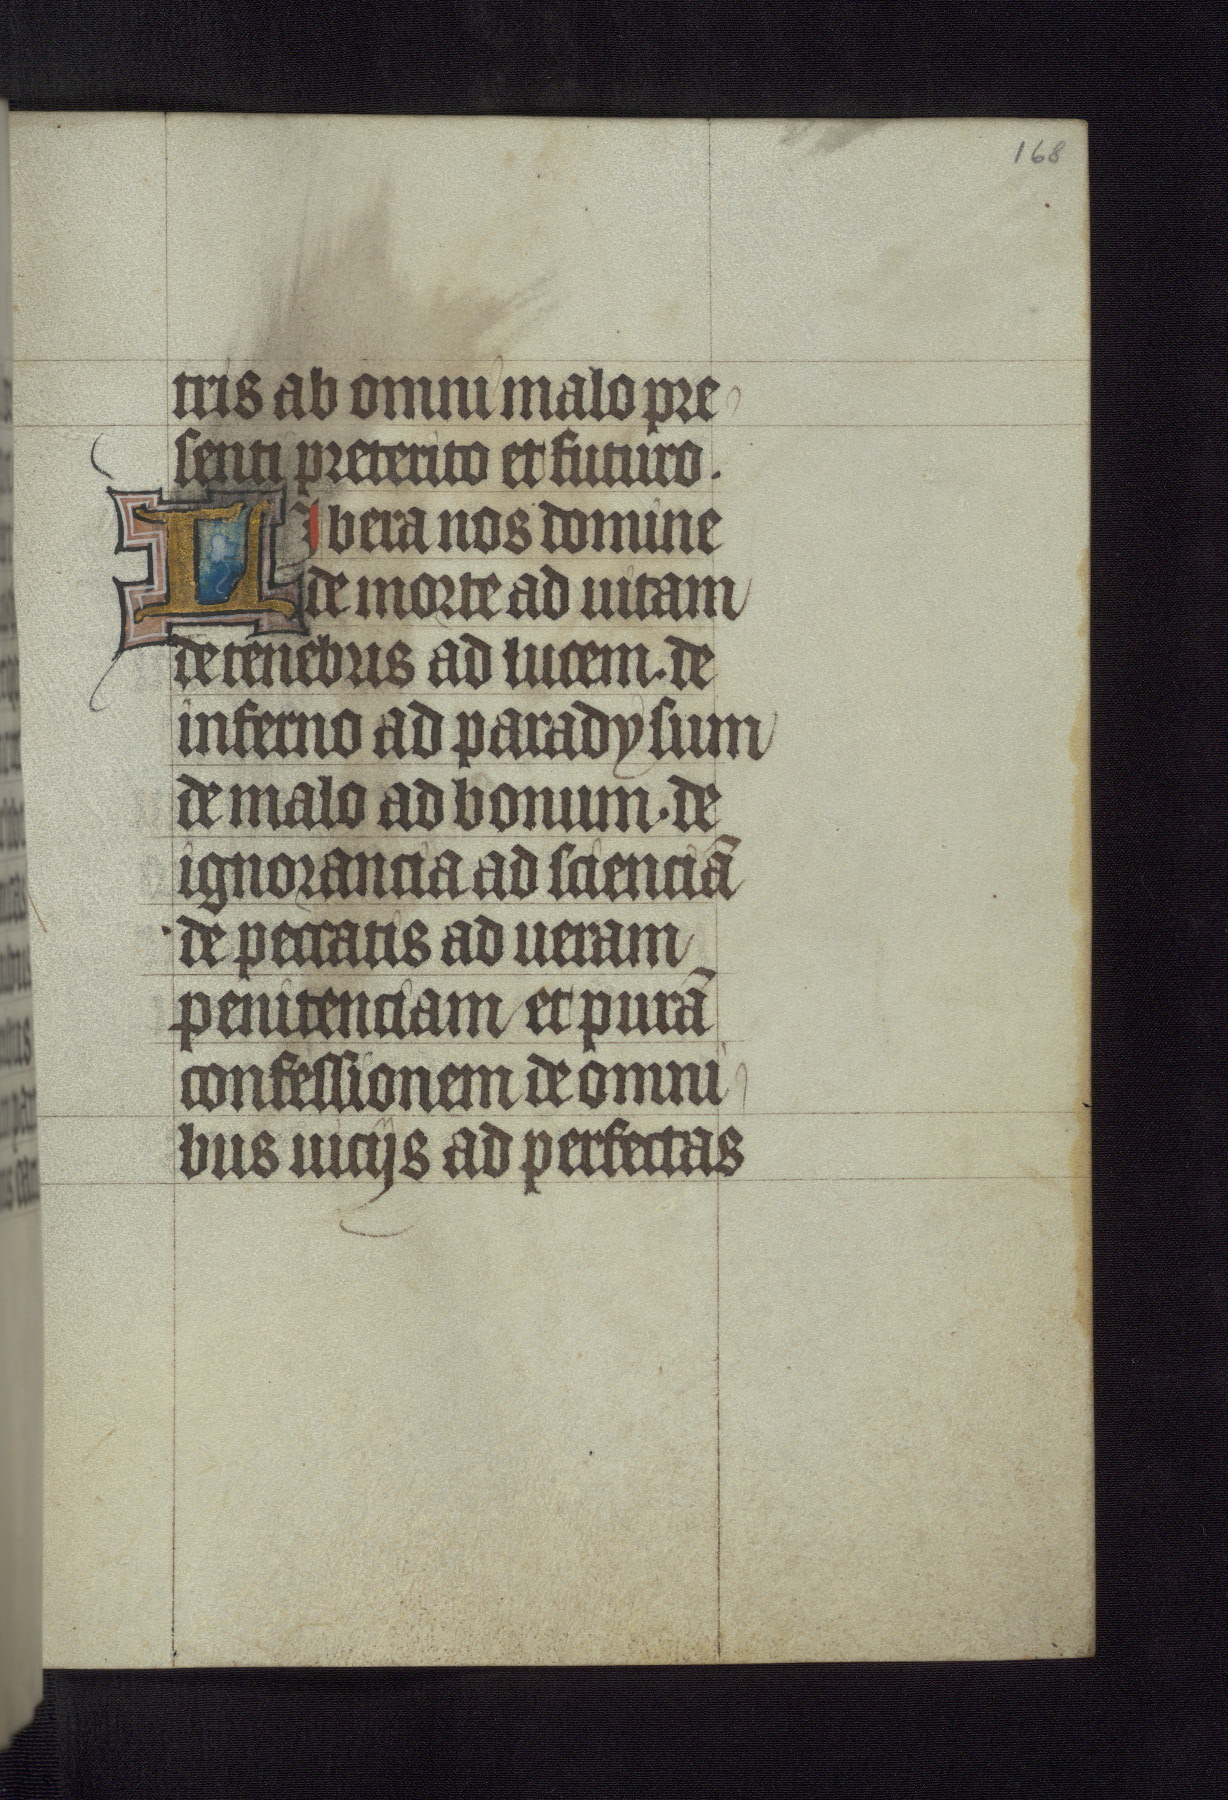 168
tris ab omni malo pre
senti preterito et futuro.
Libera nos domine
de morte ad uitam
de tenebris ad lucem. de
inferno ad paradysum
de malo ad bonum. de
ignorancia ad sciencia̅
de peccatis ad ueram
penitenciam et pura̅
confessionem de omni
bus uicijs ad perfectas